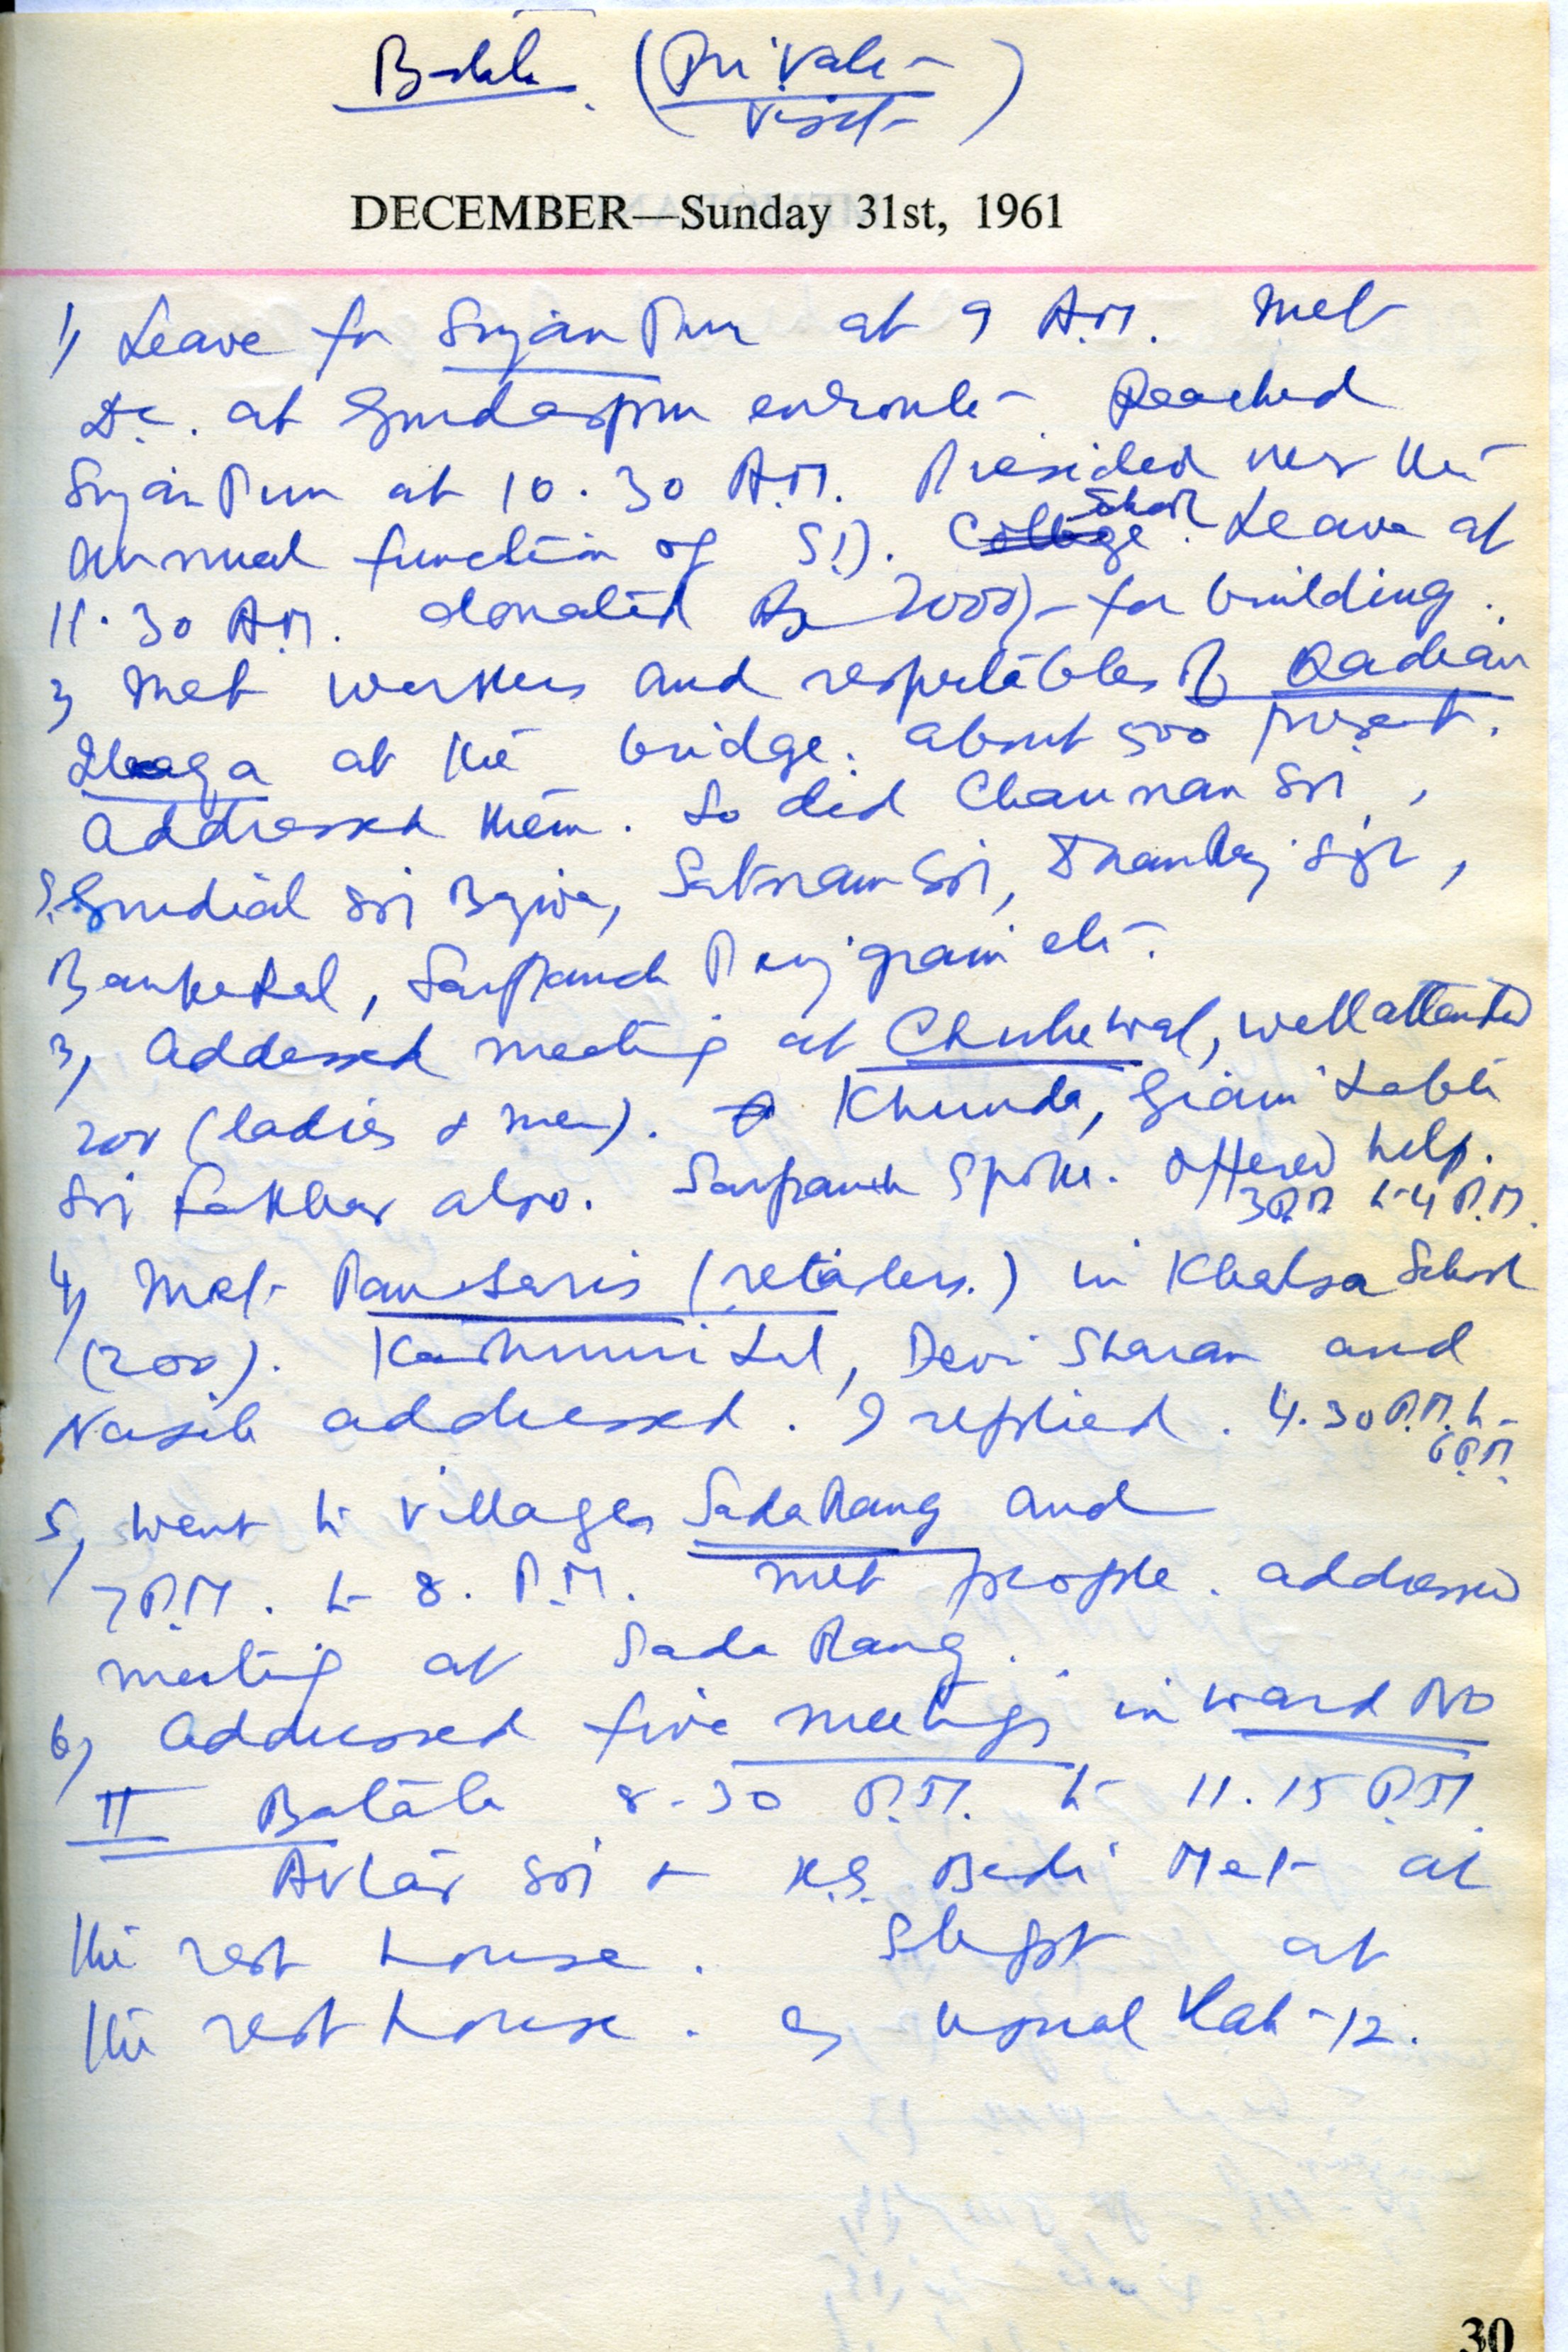 Batala (Private
Visit)
DECEMBER—Sunday 31st, 1961
1) Leave for Sujanpur at 9 A.M. Met
D.C. at Gurdaspur enroute. Reached
Sujanpur at 10.30 A.M. Presided over the
annual function of S.D. College School. Leave at
11.30 A.M. donated Rs 2000/- for building.
2) Met workers and respectables of Qadian
Ilaqa at the bridge. about 500 present.
Addressed them. So did Chairman
Gurdial Bajwa, Satnam
Sarpanch etc.
3) Addressed meeting at well attended
200 (ladies & men). Khunda, Giani Labh
also. Sarpanch spoke. Offered help.
3 P.M. to 4 P.M.
4) Met Pansaris (retailers.) in Khalsa School
(200). Kashmiri Lal, Devi Sharan and
Nasib addressed. I replied. 4.30 P.M. to
6 P.M.
5) Went to villages Sadarang and
7 P.M. to 8. P.M. Met people. addressed
meeting at Sada Rang.
6) Addressed five meetings in ward No
II Batala 8.30 P.M. to 11.15 P.M.
Avtar & K.S. Bedi Met at
the rest house. Slept at
the rest house. as usual late 12.
30